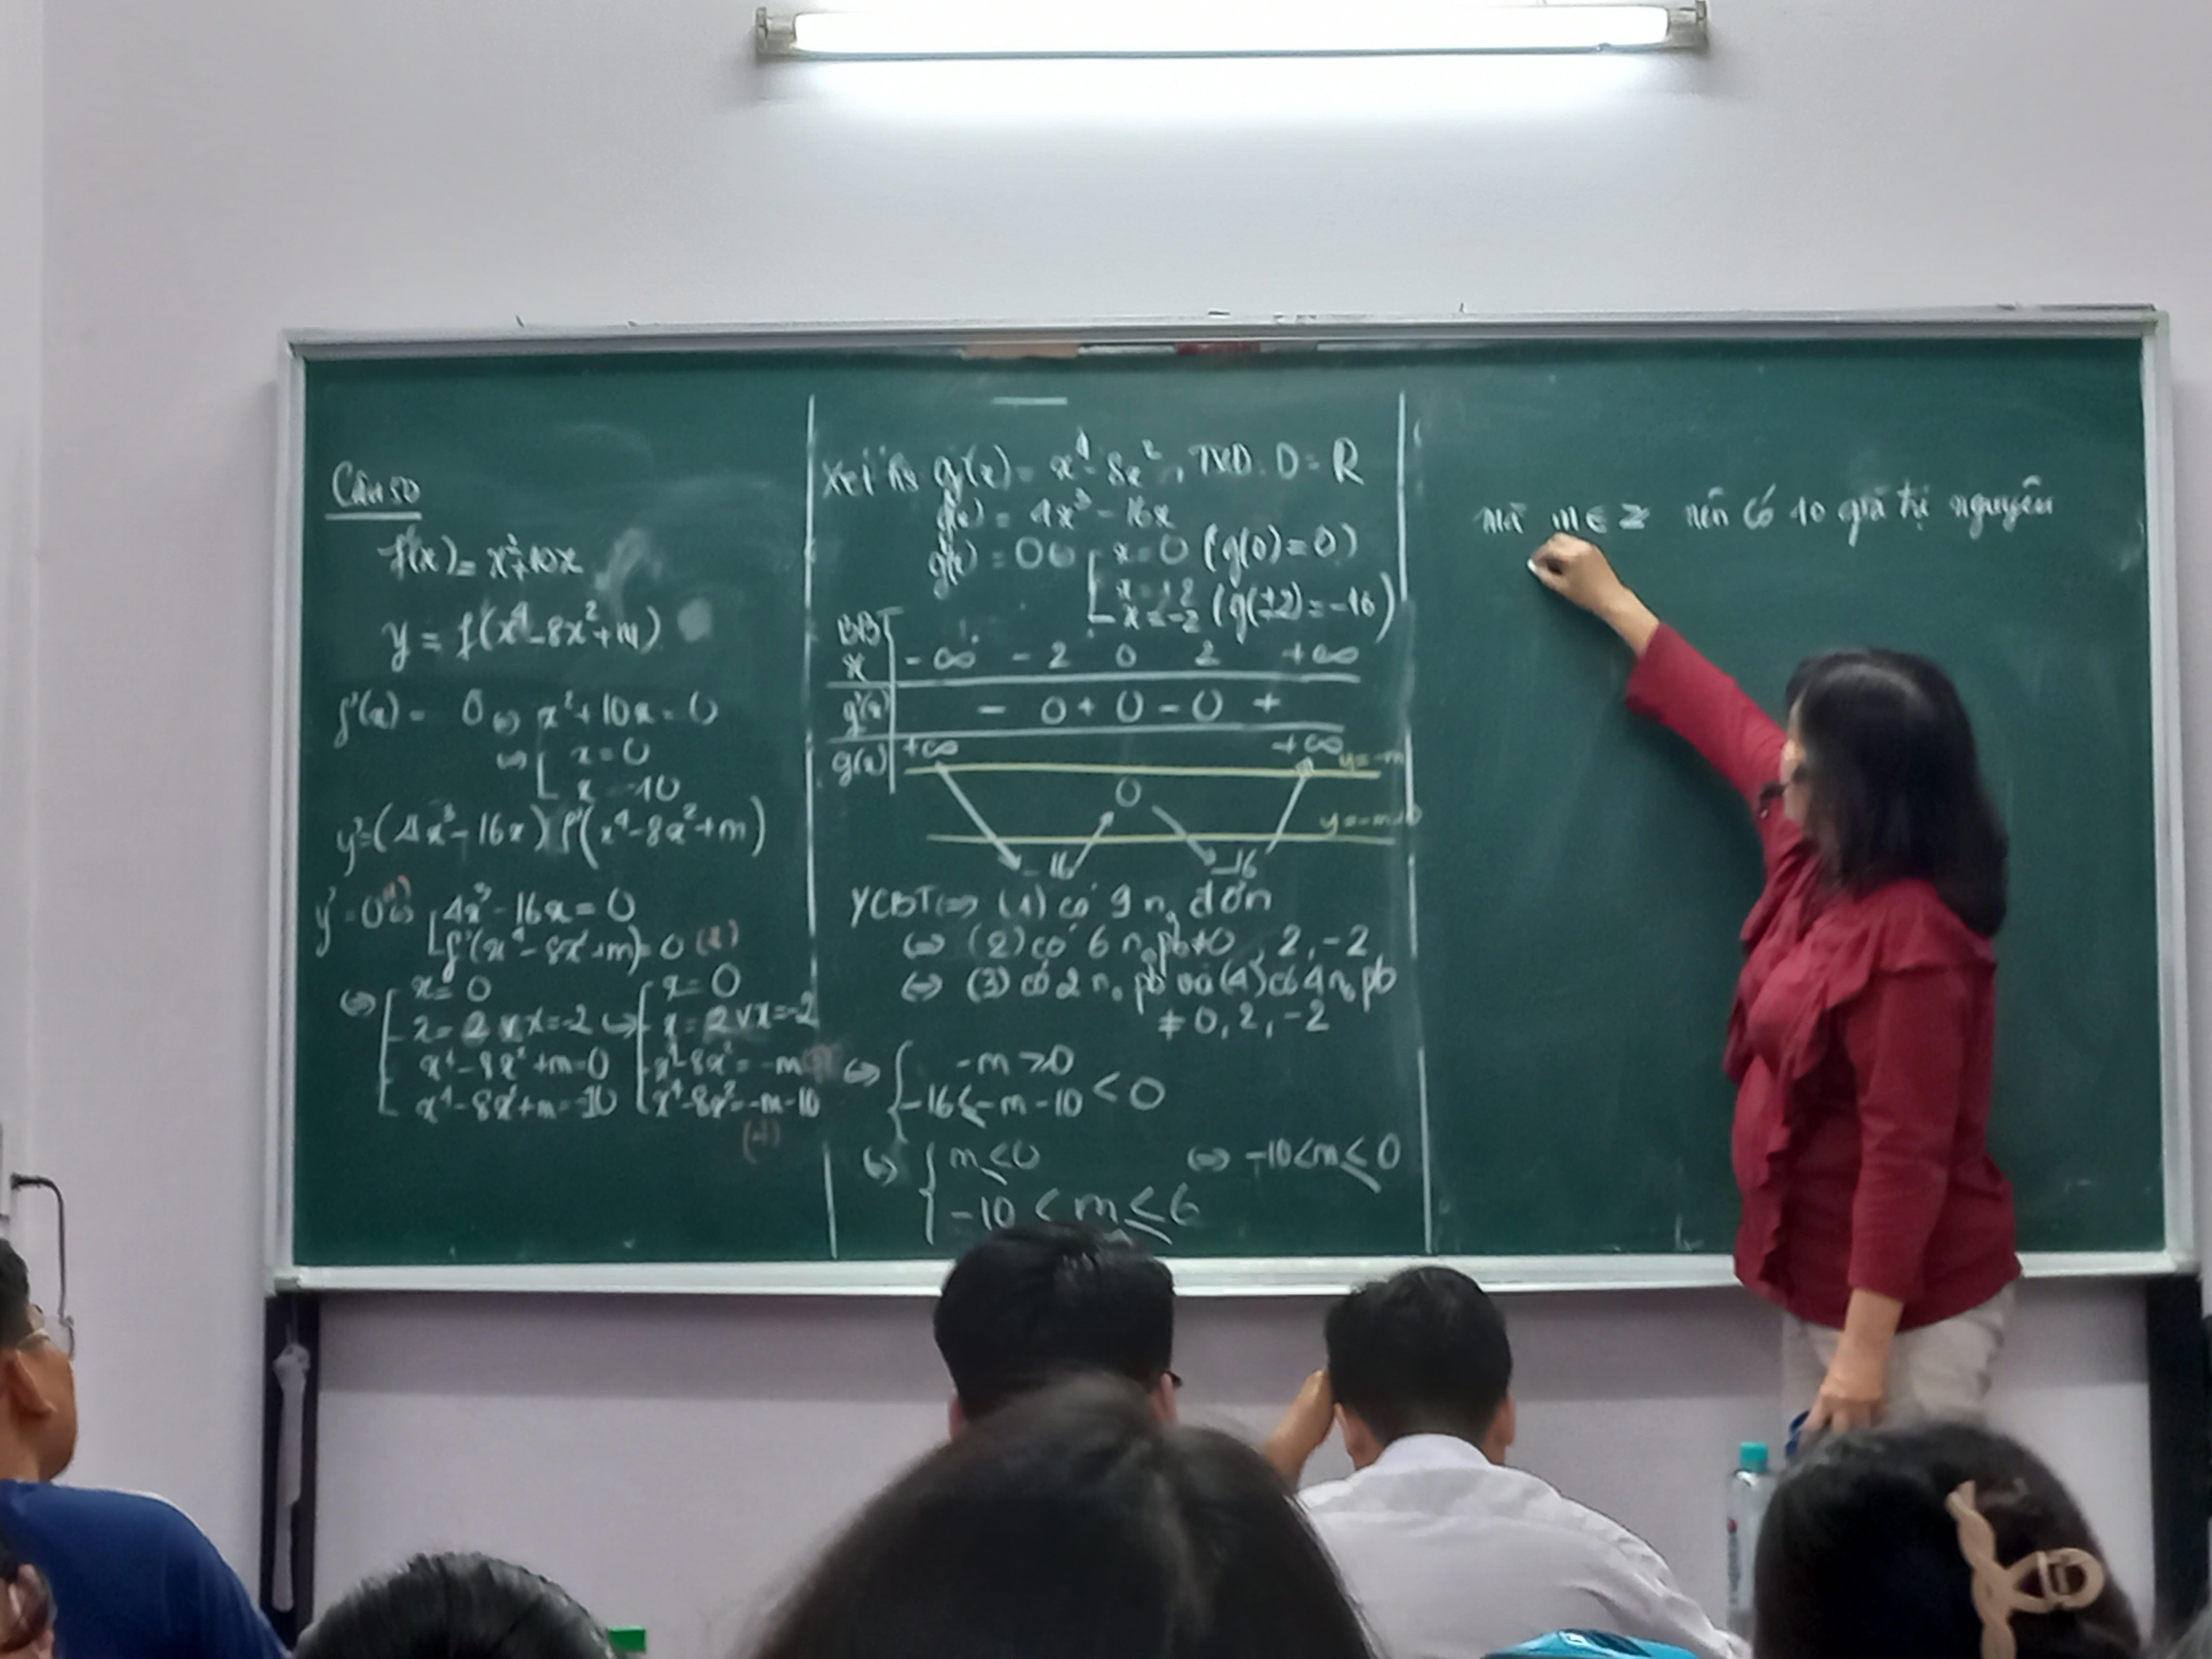 Câu 50
f'(x) = x²+10x
y = f(x⁴-8x²+m)
f'(x) = 0 ⇔ x²+10x=0
⇔ [ x=0
x=-10
y'=(4x³-16x) f'(x⁴-8x²+m)
y'=0 ⇔ (1) [ 4x³-16x=0
f'(x⁴-8x²+m)=0 (2)
⇔ [ x=0
x=2 v x=-2
x⁴-8x²+m=0
x⁴-8x²+m=-10
⇔ [ x=0
x=2 v x=-2
x⁴-8x²=-m
x⁴-8x²=-m-10
(4)
Xét hs g(x) = x⁴-8x², TXĐ: D=R
g'(x) = 4x³-16x
g'(x) = 0 ⇔ [ x=0 (g(0)=0)
x=2
x=-2 (g(±2)=-16)
BBT
x -∞ -2 0 2 +∞
g'(x) - 0 + 0 - 0 +
g(x) +∞ +∞
y=-m
0
-16 -16
YCBT ⇔ (1) có 9 n₀ đơn
⇔ (2) có 6 n₀ pb ≠ 0, 2, -2
⇔ (3) có 2 n₀ pb và (4) có 4 n₀ pb
≠ 0, 2, -2
⇔ { -m ≥ 0
-16 ≤ -m-10 < 0
⇔ { m ≤ 0
-10 < m ≤ 6
⇔ -10 < m ≤ 0
Mà m ∈ Z nên có 10 giá trị nguyên